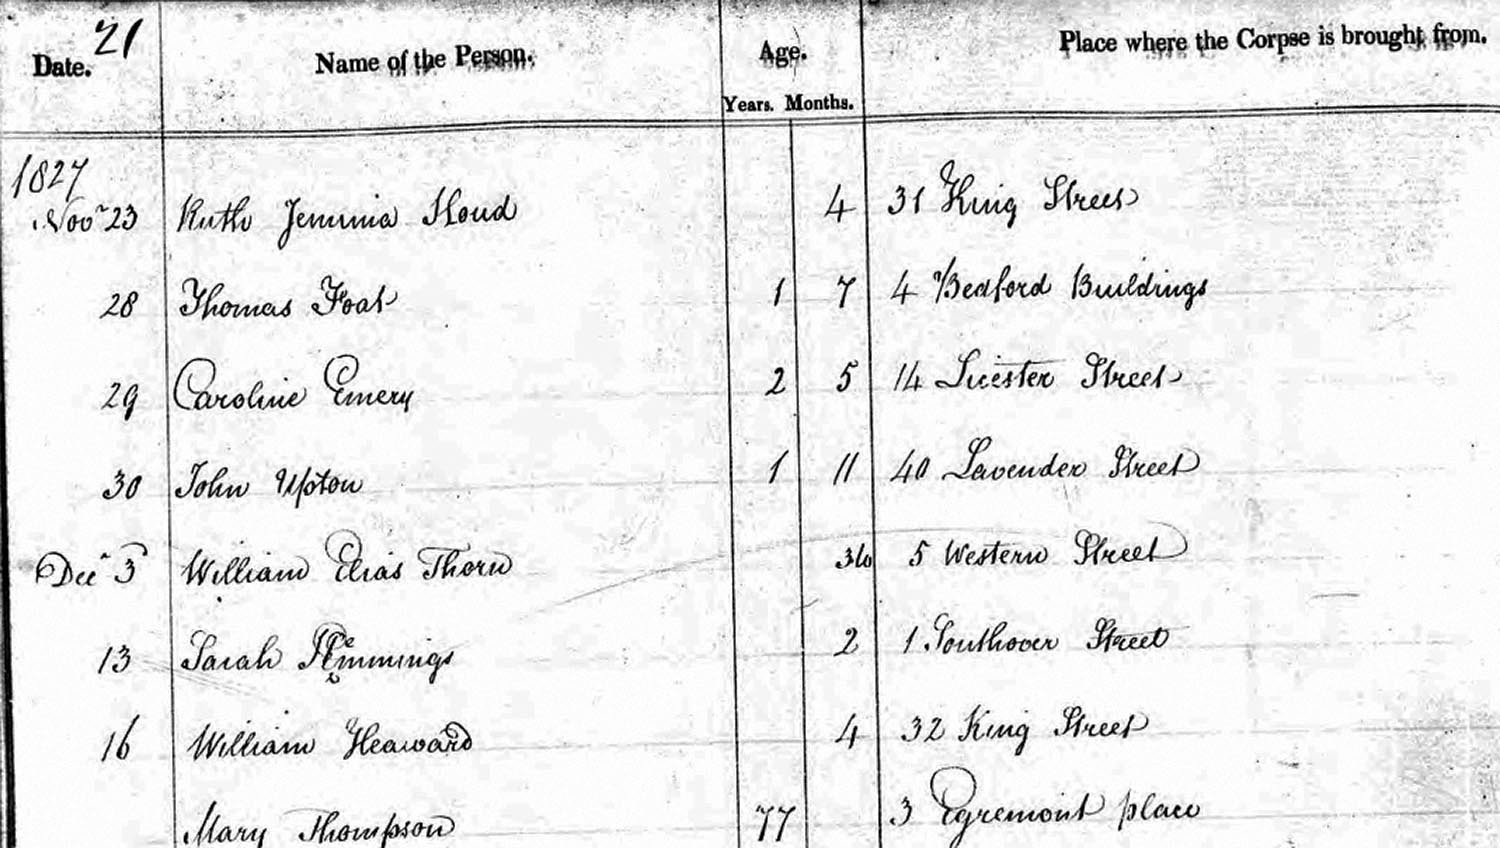 21
Date. Name of the Person. Age. Place where the Corpse is brought from.
Years. Months.
1827
Novr 23 Ruth Jemima Houd 4 31 King Street
28 Thomas Foat 1 7 4 Bedford Buildings
29 Caroline Emery 2 5 14 Licester Street
30 John Upton 1 11 40 Lavender Street
Decr 3 William Elias Thorn 5 Western Street
13 Sarah Hemmings 2 1 Southover Street
16 William Heaward 4 32 King Street
Mary Thompson 77 3 Egremont place